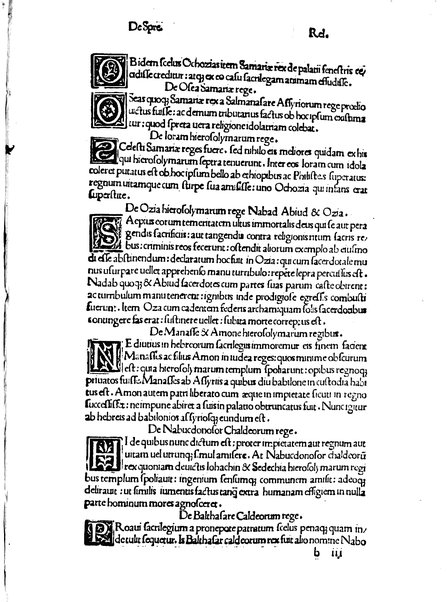 De Spre. Rel.
OB idem scelus Ochozias item Samariæ rex de palatii fenestris ce/
cidisse creditur: atq; ex eo casu sacrilegam animam effudisse.
De Osea Samariæ rege.
OSeas quoq; Samariæ rex a Salmanasare Assyriorum rege prœlio
uictus fuisse: ac demum tributarius factus ob hoc ipsum existima
tur: quod spreta uera religione idolatriam colebat.
De Ioram hierosolymarum rege.
SCelesti Samariæ reges fuere. sed nihilo eis meliores quidam ex his
qui hierosolymarum septra tenuerunt. Inter eos Ioram cum idola
coleret putatus est ob hoc ipsum bello ab ethiopibus ac Philisteis superatus:
regnum uitamque cum stirpe sua amisisse: uno Ochozia qui infans erat
superstite.
De Ozia hierosolymarum rege Nabad Abiud & Ozia.
SAepius eorum temeritatem ultus immortalis deus qui se aut pera
gendis sacrificiis: aut tangendis contra religionis ritum sacris re/
bus: criminis reos fecerunt: ostendit aliorum exemplo ab eiusmo
di esse abstinendum: declaratum hoc fuit in Ozia: qui cum sacerdotale mu
nus usurpare uellet apprehenso manu turribulo: repēte lepra percussus est.
Nadab quoq; & Abiud sacerdotes cum partes suas parum caste obirent:
ac turribulum manu tenerent: ignibus inde prodigiose egressis combusti
fuerunt. Item Oza cum cadentem fœderis archam: quam solis sacerdotibus
contingere fas erat: sustinere uellet: subita morte correptus est.
De Manasse & Amone hierosolymarum regibus.
NE diutius in hebreorum sacrilegis immoremur eis finem facient
Manasses ac filius Amon in iudea reges: quos minime obscurum
est: quia hierosolymarum templum spoliarunt: opibus regnoq;
priuatos fuisse. Manasses ab Assyriis a quibus diu babilone in custodia habi
tus est. Amon autem patri libero cum æque in impietate sicuti in regno
successisset: ne impune abiret a suis in palatio obtruncatus fuit. Nunc igitur
ab hebreis ad babilonios assyriosq; eundum est.
De Nabucdonosor Chaldeorum rege.
HI de quibus nunc dictum est: propter impietatem aut regnum aut
uitam uel utrunq; simul amisere. At Nabucdonosor chaldeorū
rex quoniam deuictis Iohachin & Sedechia hierosolymarum regi
bus templum spoliauit: ingenium sensumq; communem amisit: adeoq;
delirauit: ut similis iumentis factus tanq̄ extra humanam effigiem in nulla
parte hominum mores agnosceret.
De Balthasare Caldeorum rege.
PRoaui sacrilegium a pronepote patratum scelus pœnaq; quam in/
de tulit sequetur. Is Balthasar caldeorum rex fuit alio nomine Nabo
b iii